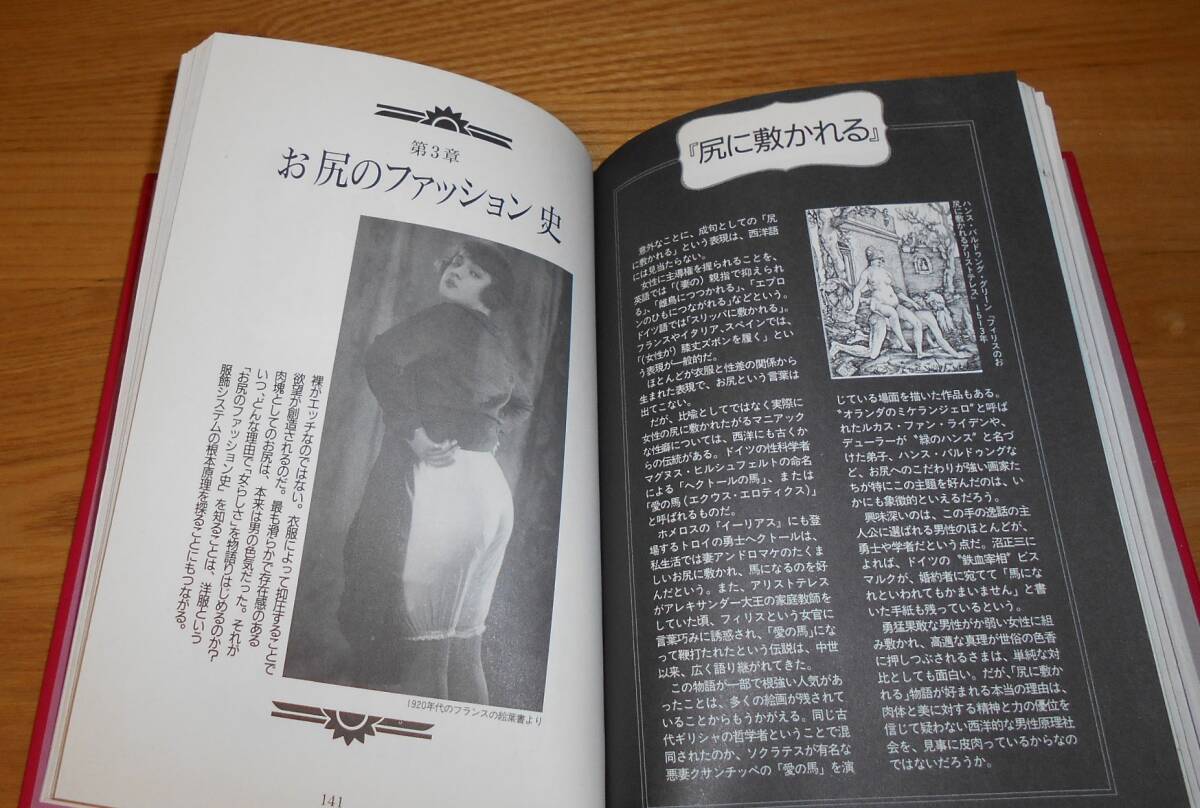 第3章
お尻のファッション史
裸がエッチなのではない。衣服によって抑圧することで
欲望が創造されるのだ。最も滑らかで存在感のある
肉塊としてのお尻は、本来は男の色気だった。それが
いつ、どんな理由で「女らしさ」を物語りはじめるのか?
「お尻のファッション史」を知ることは、洋服という
服飾システムの根本原理を探ることにもつながる。
1920年代のフランスの絵葉書より
141
『尻に敷かれる』
意外なことに、成句としての「尻
に敷かれる」という表現は、西洋語
には見当たらない。
女性に主導権を握られることを、
英語では「(妻の)親指で抑えられ
る」、「雌鳥につつかれる」、「エプロ
ンのひもにつながれる」などという。
ドイツ語では「スリッパに敷かれる」。
フランスやイタリア、スペインでは、
「(女性が)膝丈ズボンを履く」とい
う表現が一般的だ。
ほとんどが衣服と性差の関係から
生まれた表現で、お尻という言葉は
出てこない。
だが、比喩としてではなく実際に
女性の尻に敷かれたがるマニアック
な性癖については、西洋にも古くか
らの伝統がある。ドイツの性科学者
マグヌス・ヒルシュフェルトの命名
による「ヘクトールの馬」、または
「愛の馬(エクウス・エロティクス)」
と呼ばれるものだ。
ホメロスの『イーリアス』にも登
場するトロイの勇士ヘクトールは、
私生活では妻アンドロマケのたくま
しいお尻に敷かれ、馬になるのを好
んだという。また、アリストテレス
がアレキサンダー大王の家庭教師を
していた頃、フィリスという女官に
言葉巧みに誘惑され、「愛の馬」にな
って鞭打たれたという伝説は、中世
以来、広く語り継がれてきた。
この物語が一部で根強い人気があ
ったことは、多くの絵画が残されて
いることからもうかがえる。同じ古
代ギリシャの哲学者ということで混
同されたのか、ソクラテスが有名な
悪妻クサンチッペの「愛の馬」を演
ハンス・バルドゥング・グリーン「フィリスのお
尻に敷かれるアリストテレス」1513年
じている場面を描いた作品もある。
“オランダのミケランジェロ”と呼ば
れたルカス・ファン・ライデンや、
デューラーが“緑のハンス”と名づ
けた弟子、ハンス・バルドゥングな
ど、お尻へのこだわりが強い画家た
ちが特にこの主題を好んだのは、い
かにも象徴的といえるだろう。
興味深いのは、この手の逸話の主
人公に選ばれる男性のほとんどが、
勇士や学者だという点だ。沼正三に
よれば、ドイツの“鉄血宰相”ビス
マルクが、婚約者に宛てて「馬にな
れといわれてもかまいません」と書
いた手紙も残っているという。
勇猛果敢な男性がか弱い女性に組
み敷かれ、高邁な真理が世俗の色香
に押しつぶされるさまは、単純な対
比としても面白い。だが、「尻に敷か
れる」物語が好まれる本当の理由は、
肉体と美に対する精神と力の優位を
信じて疑わない西洋的な男性原理社
会を、見事に皮肉っているからなの
ではないだろうか。